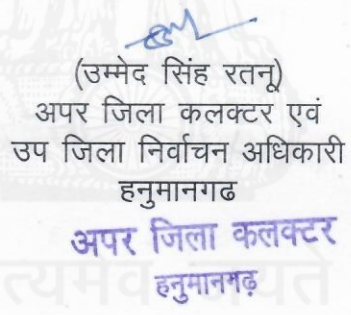 (उम्मेद सिंह रतनू)
अपर जिला कलक्टर एवं
उप जिला निर्वाचन अधिकारी
हनुमानगढ
अपर जिला कलक्टर
हनुमानगढ़
सत्यमेव जयते